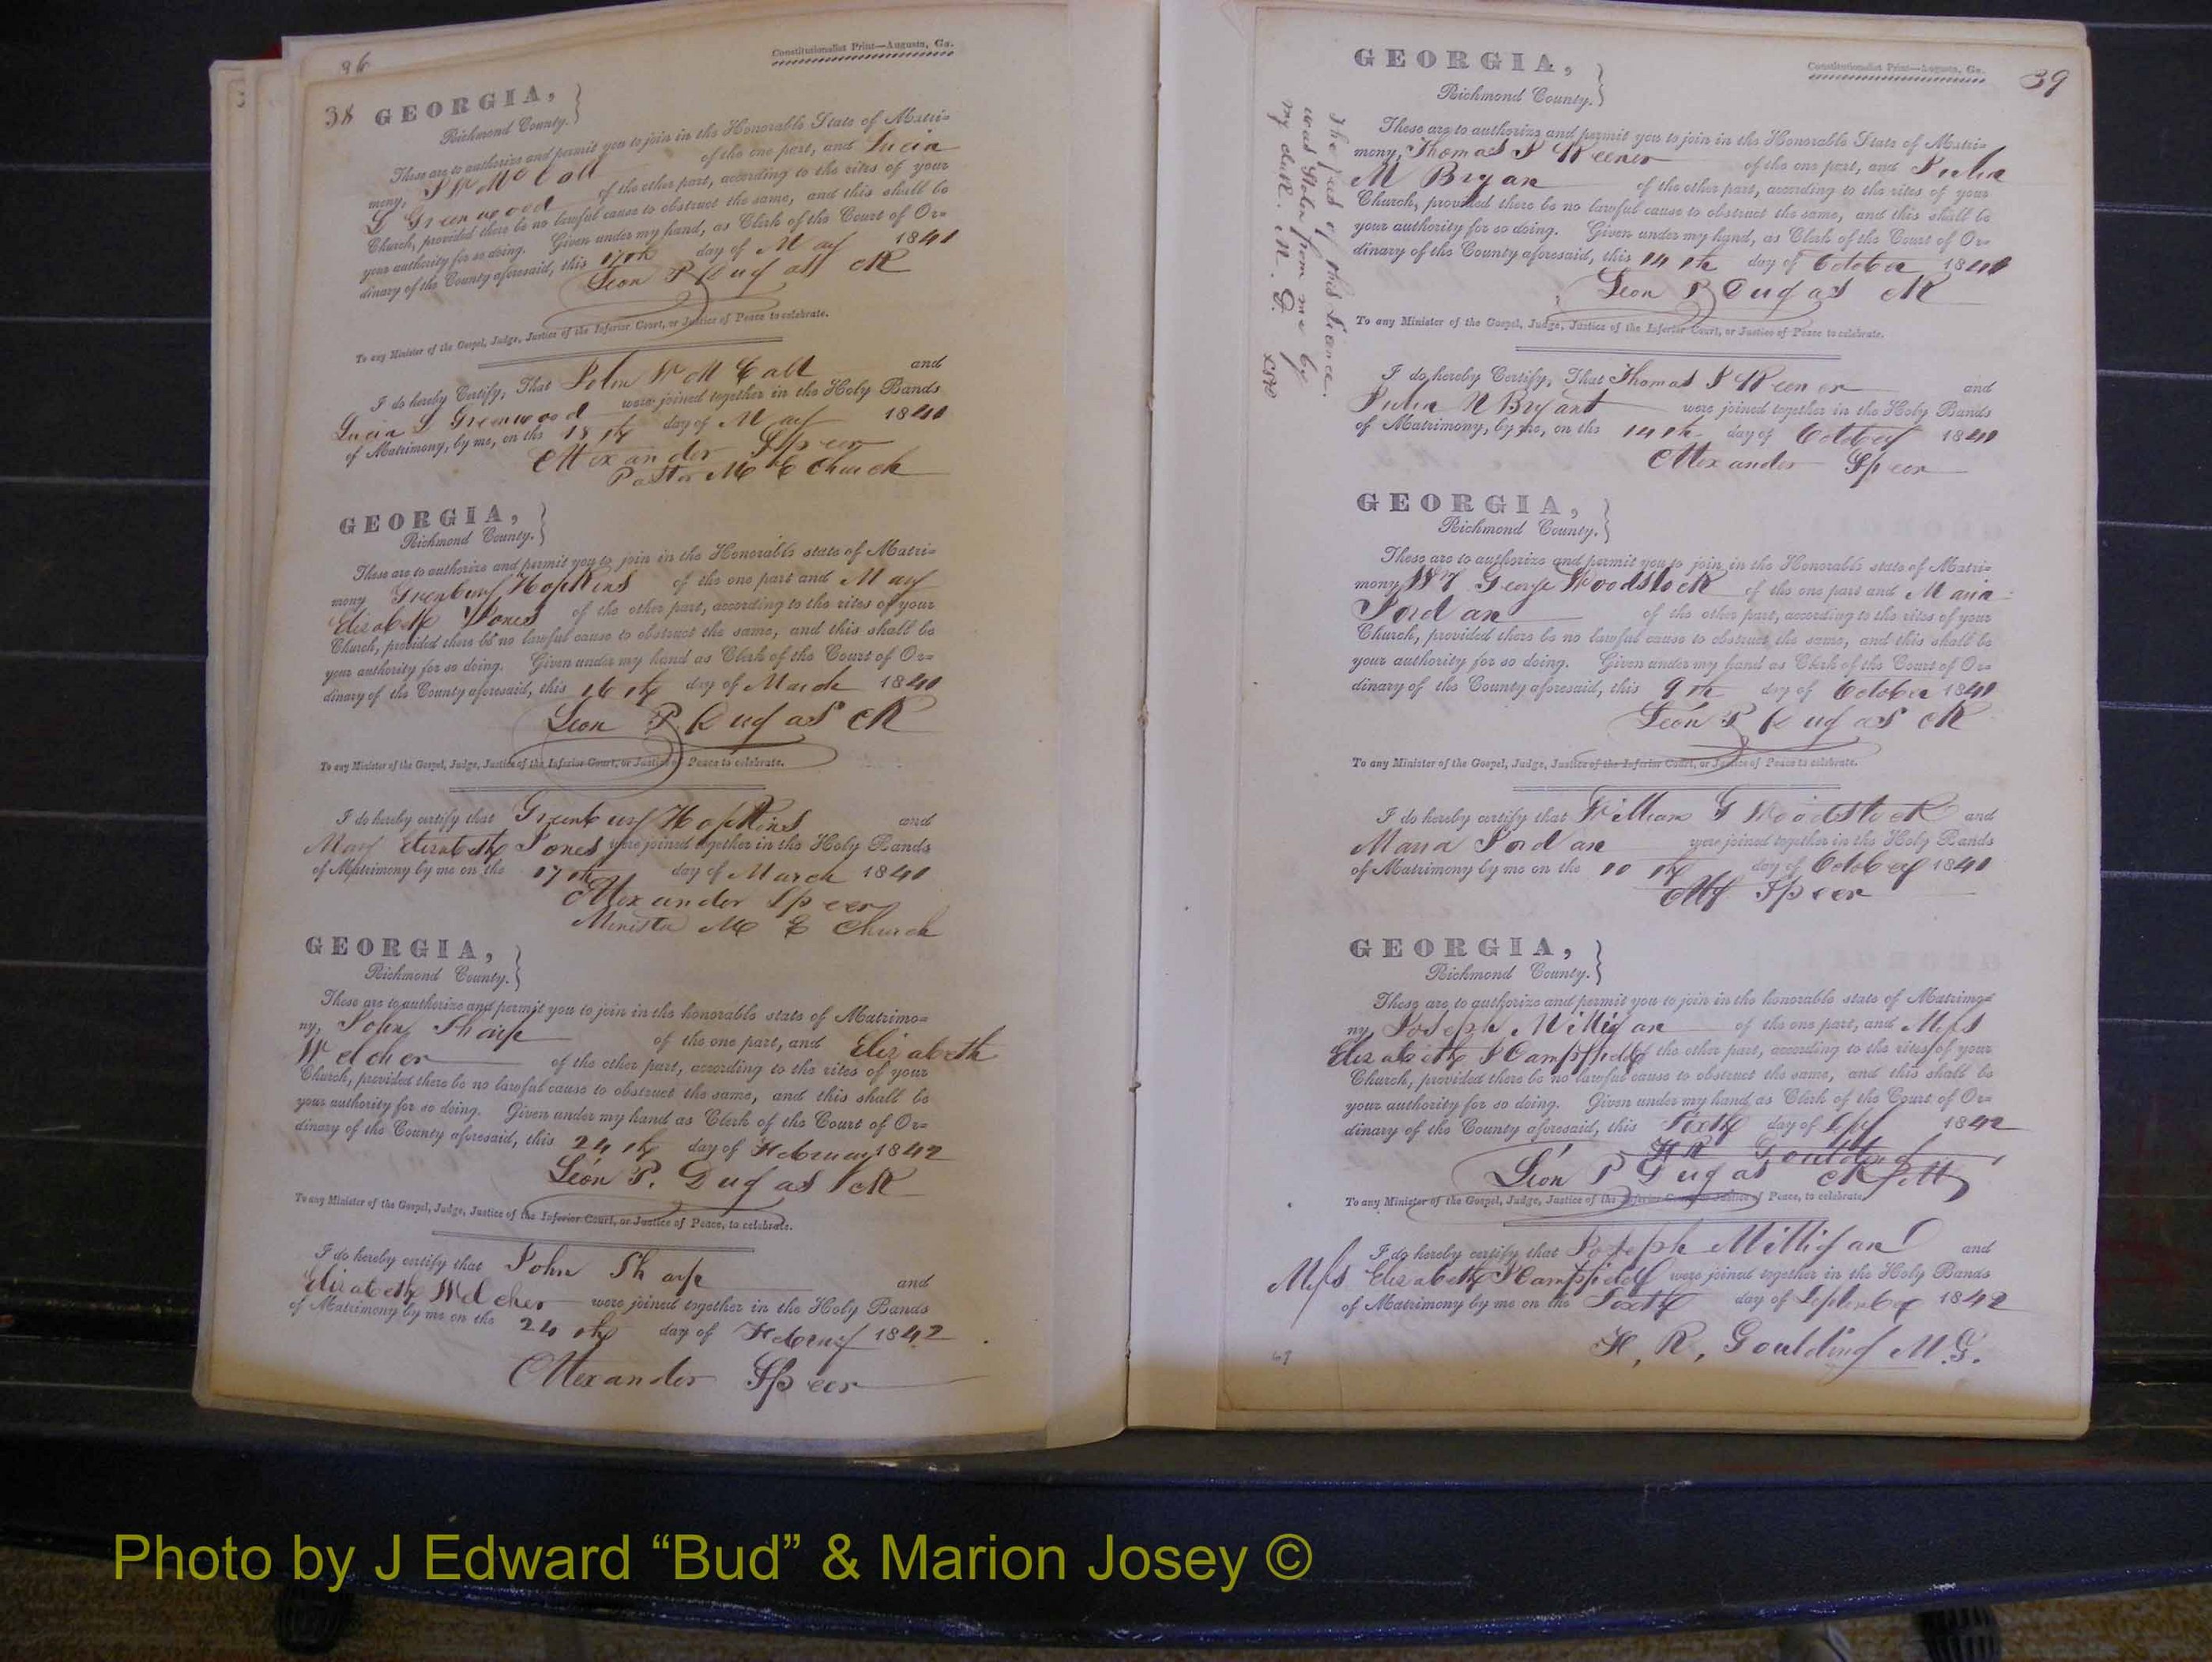 36
Constitutionalist Print—Augusta, Ga.
38 GEORGIA,
Richmond County.
These are to authorize and permit you to join in the Honorable State of Matri-
mony, J W McCall of the one part, and Lucia
S Greenwood of the other part, according to the rites of your
Church, provided there be no lawful cause to obstruct the same, and this shall be
your authority for so doing. Given under my hand, as Clerk of the Court of Or-
dinary of the County aforesaid, this 17th day of May 1841
Leon P Dugas Clk
To any Minister of the Gospel, Judge, Justice of the Inferior Court, or Justice of Peace to celebrate.
I do hereby Certify, That John W McCall and
Lucia S Greenwood were joined together in the Holy Bands
of Matrimony, by me, on the 18th day of May 1841
Alexander Speer
Pastor M E Church
GEORGIA,
Richmond County.
These are to authorize and permit you to join in the Honorable state of Matri-
mony Greenbury Hopkins of the one part and Mary
Elizabeth Jones of the other part, according to the rites of your
Church, provided there be no lawful cause to obstruct the same, and this shall be
your authority for so doing. Given under my hand as Clerk of the Court of Or-
dinary of the County aforesaid, this 16th day of March 1841
Leon P. Dugas Clk
To any Minister of the Gospel, Judge, Justice of the Inferior Court, or Justice of Peace to celebrate.
I do hereby certify that Greenbury Hopkins and
Mary Elizabeth Jones were joined together in the Holy Bands
of Matrimony by me on the 17th day of March 1841
Alexander Speer
Minister M E Church
GEORGIA,
Richmond County.
These are to authorize and permit you to join in the honorable state of Matrimo-
ny, John Sharp of the one part, and Elizabeth
Welcher of the other part, according to the rites of your
Church, provided there be no lawful cause to obstruct the same, and this shall be
your authority for so doing. Given under my hand as Clerk of the Court of Or-
dinary of the County aforesaid, this 24th day of February 1842
Léon P. Dugas Clk
To any Minister of the Gospel, Judge, Justice of the Inferior Court, or Justice of Peace, to celebrate.
I do hereby certify that John Sharp and
Elizabeth Welcher were joined together in the Holy Bands
of Matrimony by me on the 24th day of Februy 1842
Alexander Speer
Constitutionalist Print—Augusta, Ga. 39
GEORGIA,
Richmond County.
The fees of this License
was stolen from me by
my dutk. M. G.
These are to authorize and permit you to join in the Honorable State of Matri-
mony, Thomas J Keener of the one part, and Julia
M Bryan of the other part, according to the rites of your
Church, provided there be no lawful cause to obstruct the same, and this shall be
your authority for so doing. Given under my hand, as Clerk of the Court of Or-
dinary of the County aforesaid, this 14th day of October 1841
Leon P Dugas Clk
To any Minister of the Gospel, Judge, Justice of the Inferior Court, or Justice of Peace to celebrate.
I do hereby Certify, That Thomas J Keener and
Julia N Bryant were joined together in the Holy Bands
of Matrimony, by me, on the 14th day of October 1841
Alexander Speer
GEORGIA,
Richmond County.
These are to authorize and permit you to join in the Honorable state of Matri-
mony Wm George Woodstock of the one part and Maria
Jordan of the other part, according to the rites of your
Church, provided there be no lawful cause to obstruct the same, and this shall be
your authority for so doing. Given under my hand as Clerk of the Court of Or-
dinary of the County aforesaid, this 9th day of October 1841
Léon P Dugas Clk
To any Minister of the Gospel, Judge, Justice of the Inferior Court, or Justice of Peace to celebrate.
I do hereby certify that William G Woodstock and
Maria Jordan were joined together in the Holy Bands
of Matrimony by me on the 10th day of October 1841
Alex Speer
GEORGIA,
Richmond County.
These are to authorize and permit you to join in the honorable state of Matrimo-
ny, Joseph Milligan of the one part, and Miss
Elizabeth J Campfield of the other part, according to the rites of your
Church, provided there be no lawful cause to obstruct the same, and this shall be
your authority for so doing. Given under my hand as Clerk of the Court of Or-
dinary of the County aforesaid, this Sixth day of Sept 1842
F R Goulding
Léon P Dugas Clk
To any Minister of the Gospel, Judge, Justice of the Inferior Court, or Justice of Peace, to celebrate.
I do hereby certify that Joseph Milligan and
Miss Elizabeth J Campfield were joined together in the Holy Bands
of Matrimony by me on the Sixth day of September 1842
F. R. Goulding M.G.
Photo by J Edward “Bud” & Marion Josey ©